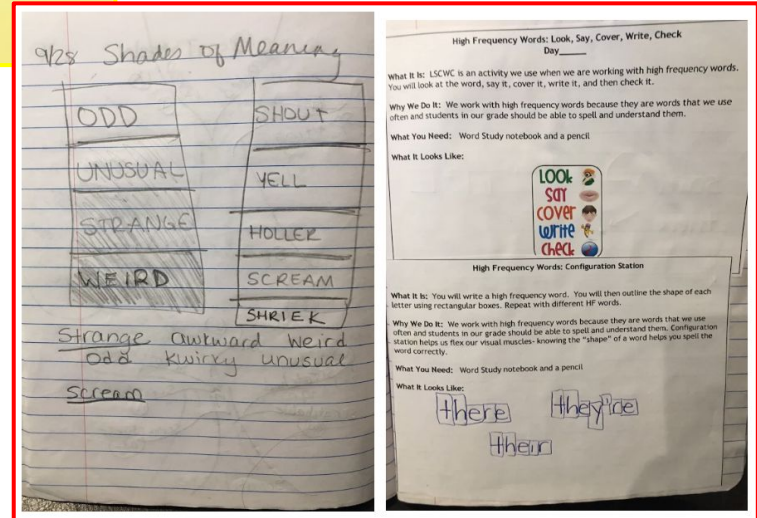 9/28 Shades of Meaning
ODD
UNUSUAL
STRANGE
WEIRD
SHOUT
YELL
HOLLER
SCREAM
SHRIEK
Strange awkward weird
odd kwirky unusual
Scream
High Frequency Words: Look, Say, Cover, Write, Check
Day_____
What It Is: LSCWC is an activity we use when we are working with high frequency words.
You will look at the word, say it, cover it, write it, and then check it.
Why We Do It: We work with high frequency words because they are words that we use
often and students in our grade should be able to spell and understand them.
What You Need: Word Study notebook and a pencil
What It Looks Like:
LOOk
SaY
COVer
WriTe
CHeCk
High Frequency Words: Configuration Station
What It Is: You will write a high frequency word. You will then outline the shape of each
letter using rectangular boxes. Repeat with different HF words.
Why We Do It: We work with high frequency words because they are words that we use
often and students in our grade should be able to spell and understand them. Configuration
station helps us flex our visual muscles- knowing the "shape" of a word helps you spell the
word correctly.
What You Need: Word Study notebook and a pencil
What It Looks Like:
there they're
their